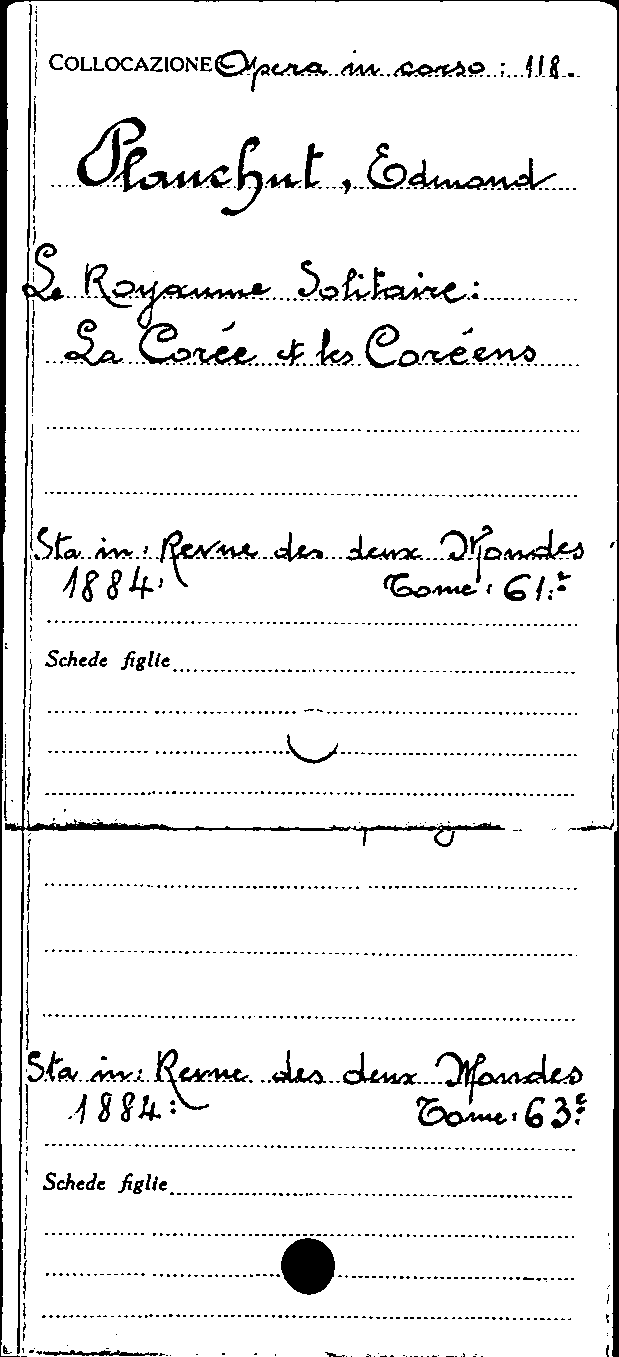 COLLOCAZIONE Opera in corso : 118.
Plauchut, Edmond
Le Royaume Solitaire:
La Corée et les Coréens
Sta in: Revue des deux Mondes
1884: Tome: 61.e
Schede figlie
Sta in: Revue des deux Mondes
1884: Tome: 63.e
Schede figlie